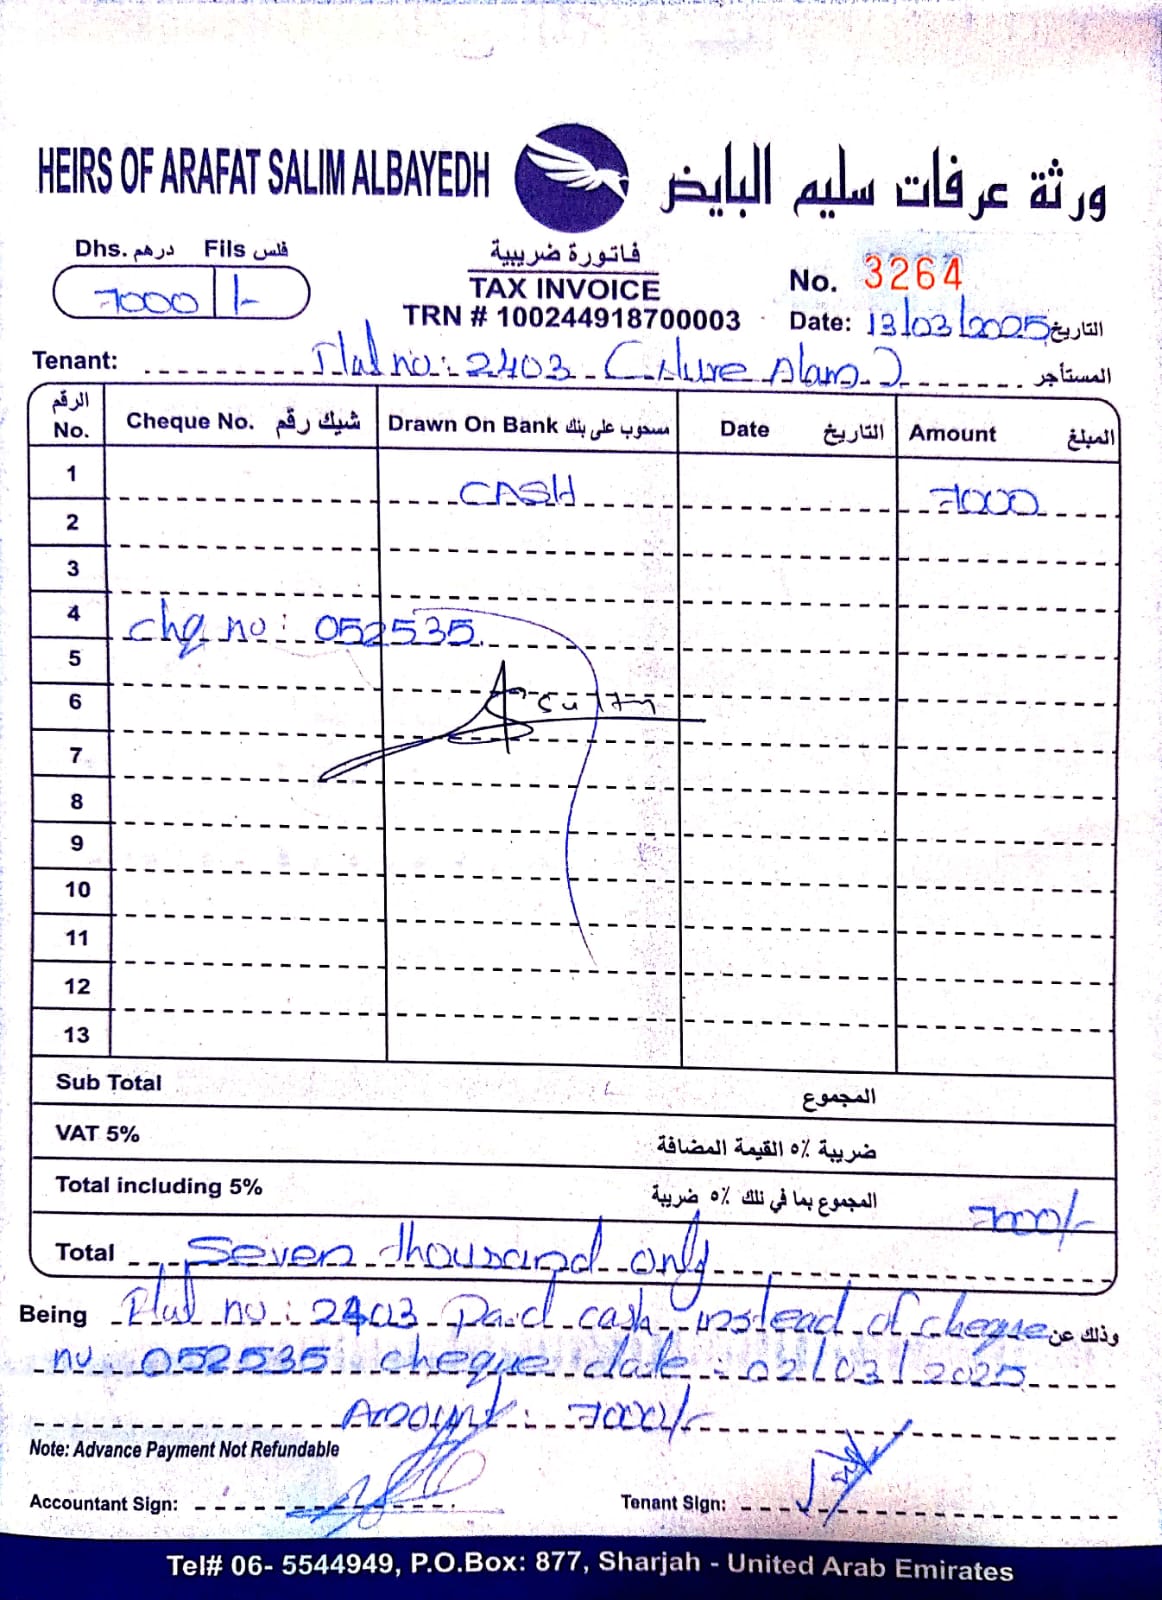 HEIRS OF ARAFAT SALIM ALBAYEDH
ورثة عرفات سليم البايض
Dhs. درهم Fils فلس
7000 /-
فاتورة ضريبية
TAX INVOICE
TRN # 100244918700003
No. 3264
Date: 13/03/2025 التاريخ
Tenant: Flat no: 2403 المستأجر
الرقم No. Cheque No. شيك رقم Drawn On Bank مسحوب على بنك Date التاريخ Amount المبلغ
1 CASH 7000
2
3
4 chq no: 052535
5
6
7
8
9
10
11
12
13
Sub Total المجموع
VAT 5% ضريبة ٥٪ القيمة المضافة
Total including 5% المجموع بما في ذلك ٥٪ ضريبة 7000/-
Total Seven thousand only
Being Flat no: 2403 Paid cash instead of cheque وذلك عن
no 052535 cheque date: 02/03/2025
Amount: 7000/-
Note: Advance Payment Not Refundable
Accountant Sign: Tenant Sign:
Tel# 06- 5544949, P.O.Box: 877, Sharjah - United Arab Emirates